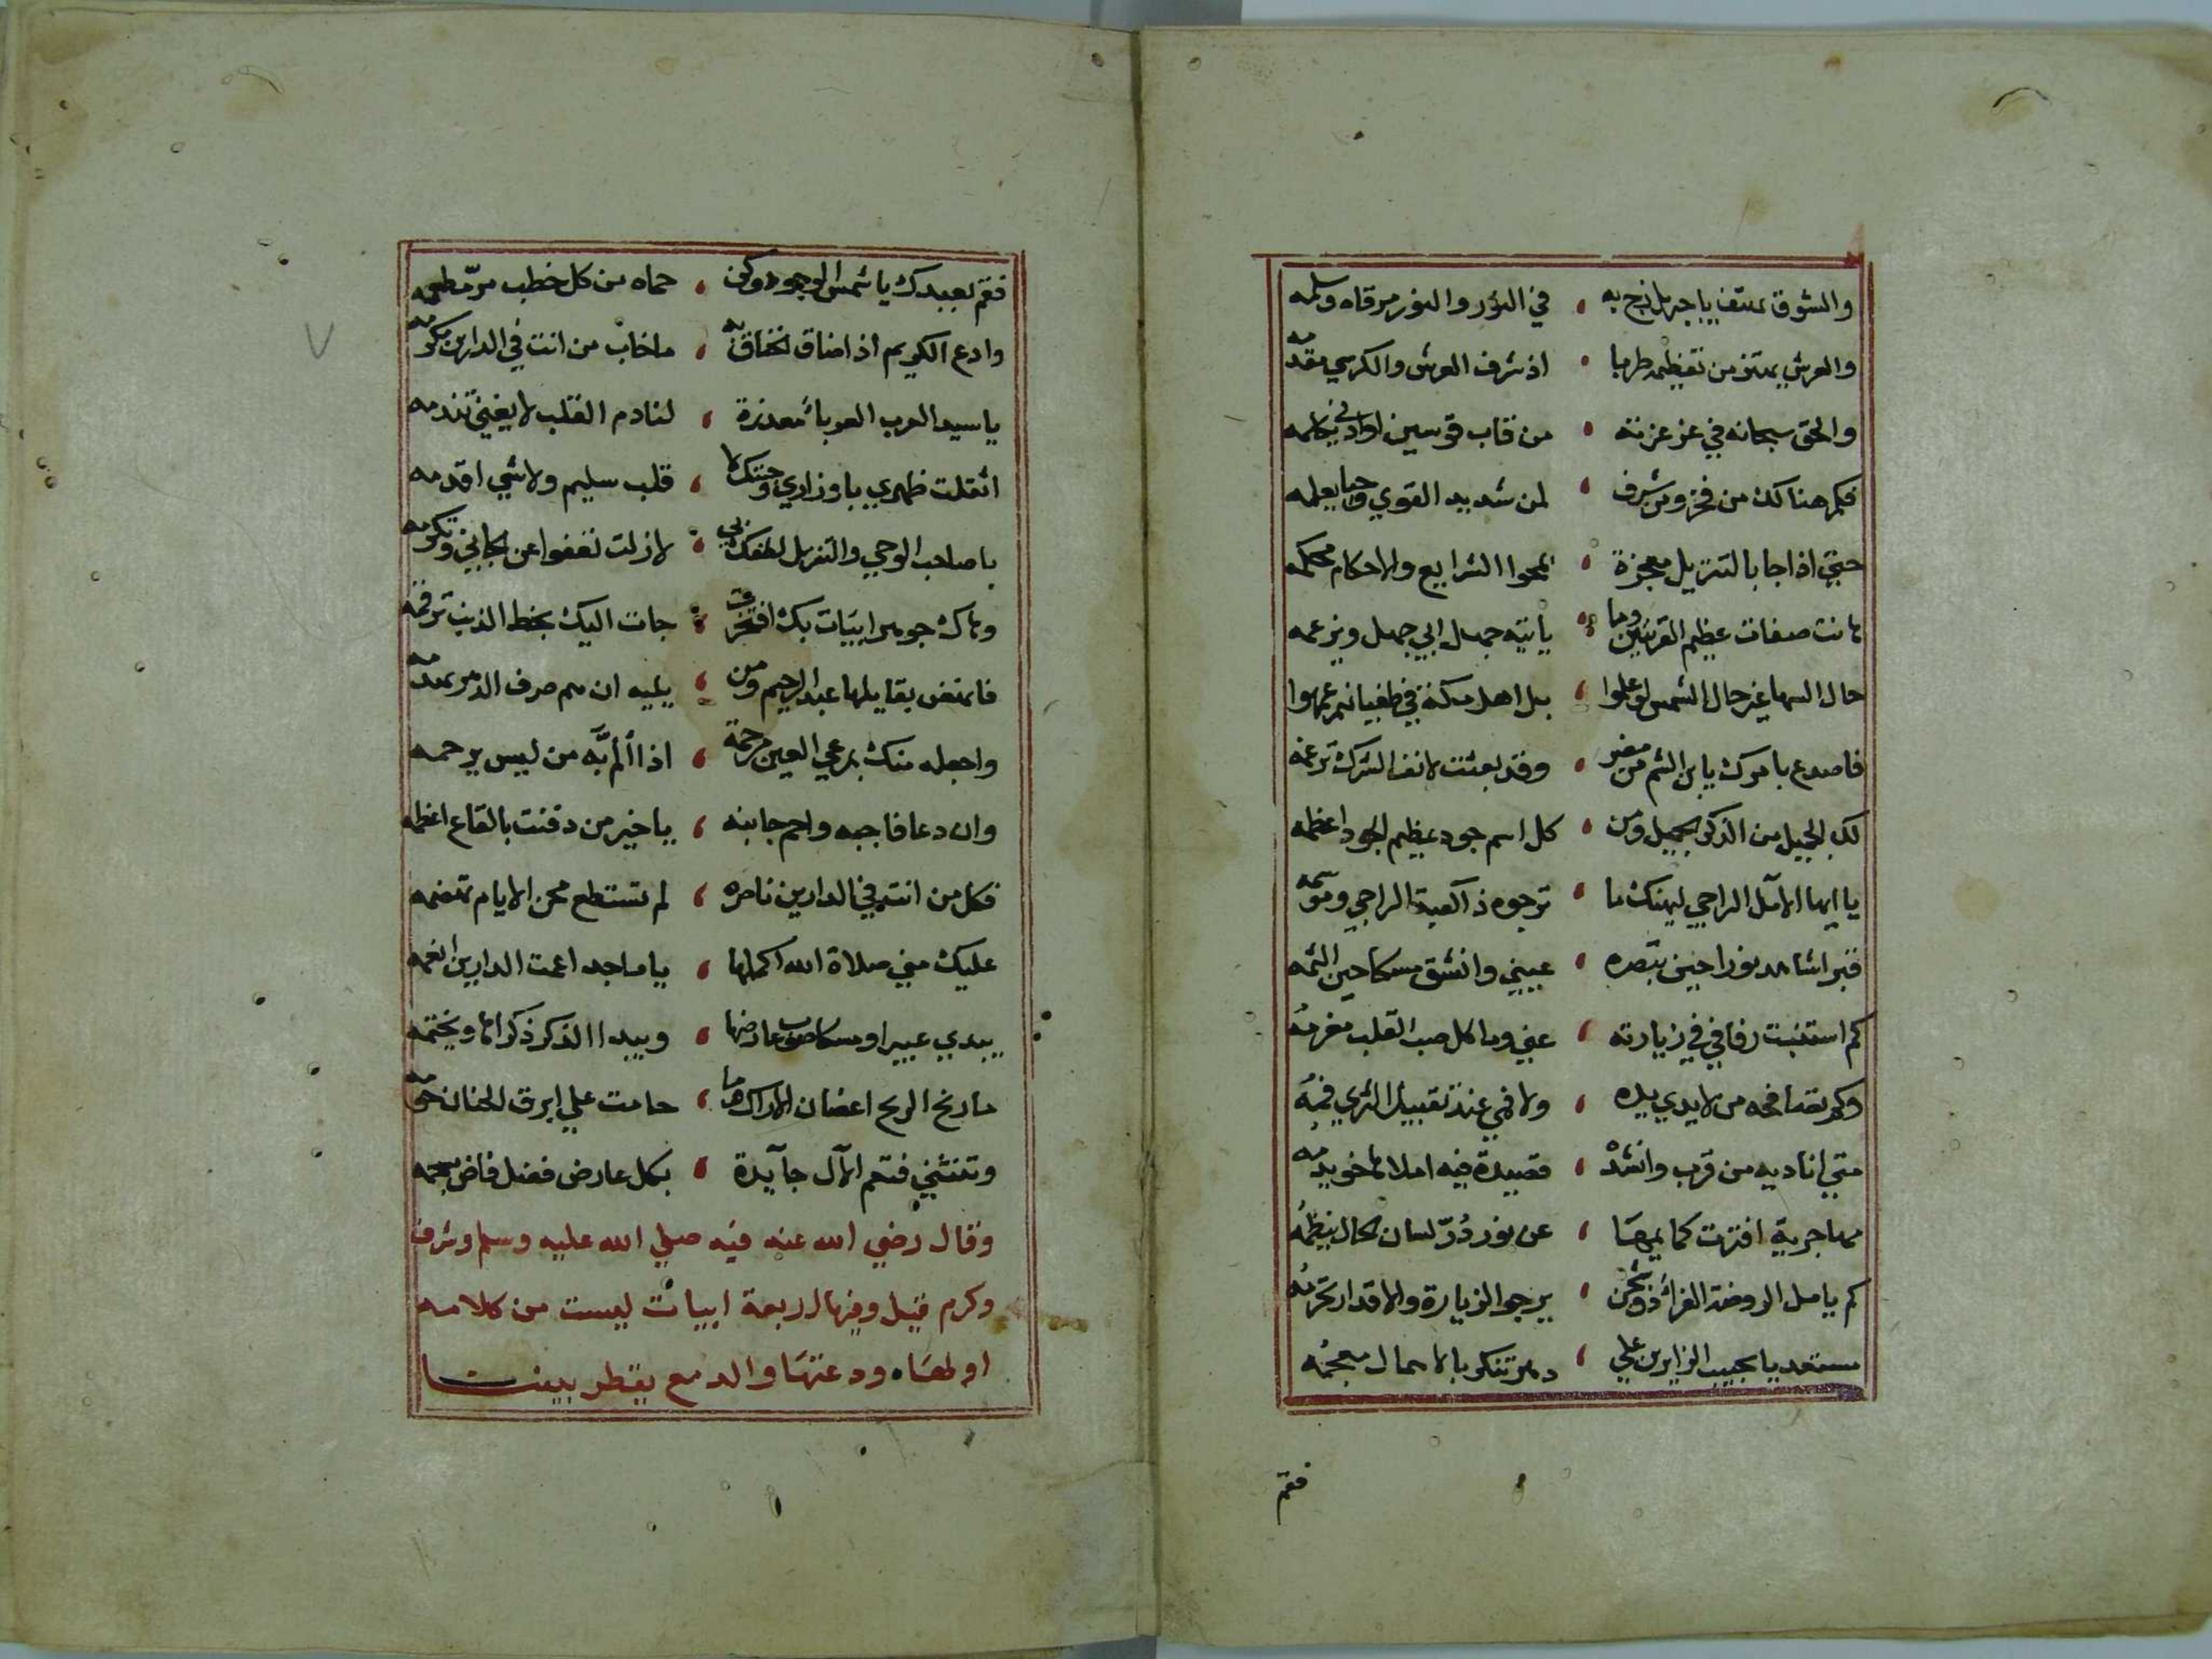 والشوق يهتف يا جبريل زج به ، في النور والنور مرقاه وسلمه
والعرش يهتز من تعظيمه طربا ، اذ شرف العرش والكرسي مقدمه
والحق سبحانه في عز عزته ، من قاب قوسين او ادني يكلمه
فكم هنالك من فخر ومن شرف ، لمن شديد القوي وحيا يعلمه
حتي اذا جا بالتنزيل معجزة ، تمحوا الشرايع والاحكام محكمه
هانت صفات عظيم القريتين وما ، ياتيه جهل ابي جهل ويزعمه
حال السها غير حال الشمس لو علموا ، بل اهل مكة في طغيانهم عمهوا
فاصدع بامرك يا بن الشم من مضر ، وقد بعثت لانف الشرك ترغمه
لك الجميل من الذكر الجميل ومن ، كل اسم جود عظيم الجود اعظمه
يا ايها الامل الراجي ليهنك ما ، ترجوه ذا كعبة الراجي وموسمه
قبرا اشاهد نورا حين تبصره ، عيني وانشق مسكا حين الثمه
كم استنبت رفاقي في زيارته ، عني وما كل صب القلب مغرمه
وكم تصافحه من لا يدي يده ، ولا فمي عند تقبيل الثري فمه
متي اناديه من قرب وانشد ، قصيدة فيه املاها خويدمه
مهاجرية افترت كمايمها ، عن نور در لسان الحال ينظمه
كم يامل الروضة الغراء ذو شجن ، يرجوا الزيارة والاقدار تحرمه
مستعديا بحبيب الزايرين علي ، دهر تنكر بالاهمال معجمه
فقم
فقم بعبدك يا شمس الوجود وكن ، حماه من كل خطب مر مطعمه
وادع الكريم اذا ضاق الخناق به ، ما خاب من انت في الدارين مكرمه
يا سيد العرب العرباء معذرة ، لنادم القلب لا يغني تندمه
اثقلت ظهري باوزاري وجئتك لا ، قلب سليم ولا شي اقدمه
يا صاحب الوحي والتنزيل لطفك بي ، لا زلت تعفوا عن الجاني وتكرمه
وهاك جوهر ابيات بك افتخرت ، جات اليك بخط الذنب ترقمه
فانهض بقايلها عبد الرحيم ومن ، يليه ان هم صرف الدهر يهدمه
واجعله منك بمرعي العين مرحمة ، اذا الم به من ليس يرحمه
وان دعا فاجبه واحم جانبه ، يا خير من دفنت بالقاع اعظمه
فكل من انت في الدارين ناصره ، لم تستطع محن الايام تهضمه
عليك مني صلاة الله اكملها ، يا ماجد اعمت الدارين انعمه
يبدي عبيرا ومسكا صوب عارضها ، ويبدا الذكر ذكراها ويختمه
ما رنح الريح اغصان الاراك وما ، حامت علي ابرق الحنان حومه
وتنثني فتعم الآل جآيدة ، بكل عارض فضل فاض مسجمه
وقال رضي الله عنه فيه صلي الله عليه وسلم وشرف
وكرم قيل وفيها اربعة ابيات ليست من كلامه
اولها ودعتها والدمع يقطر بيننا